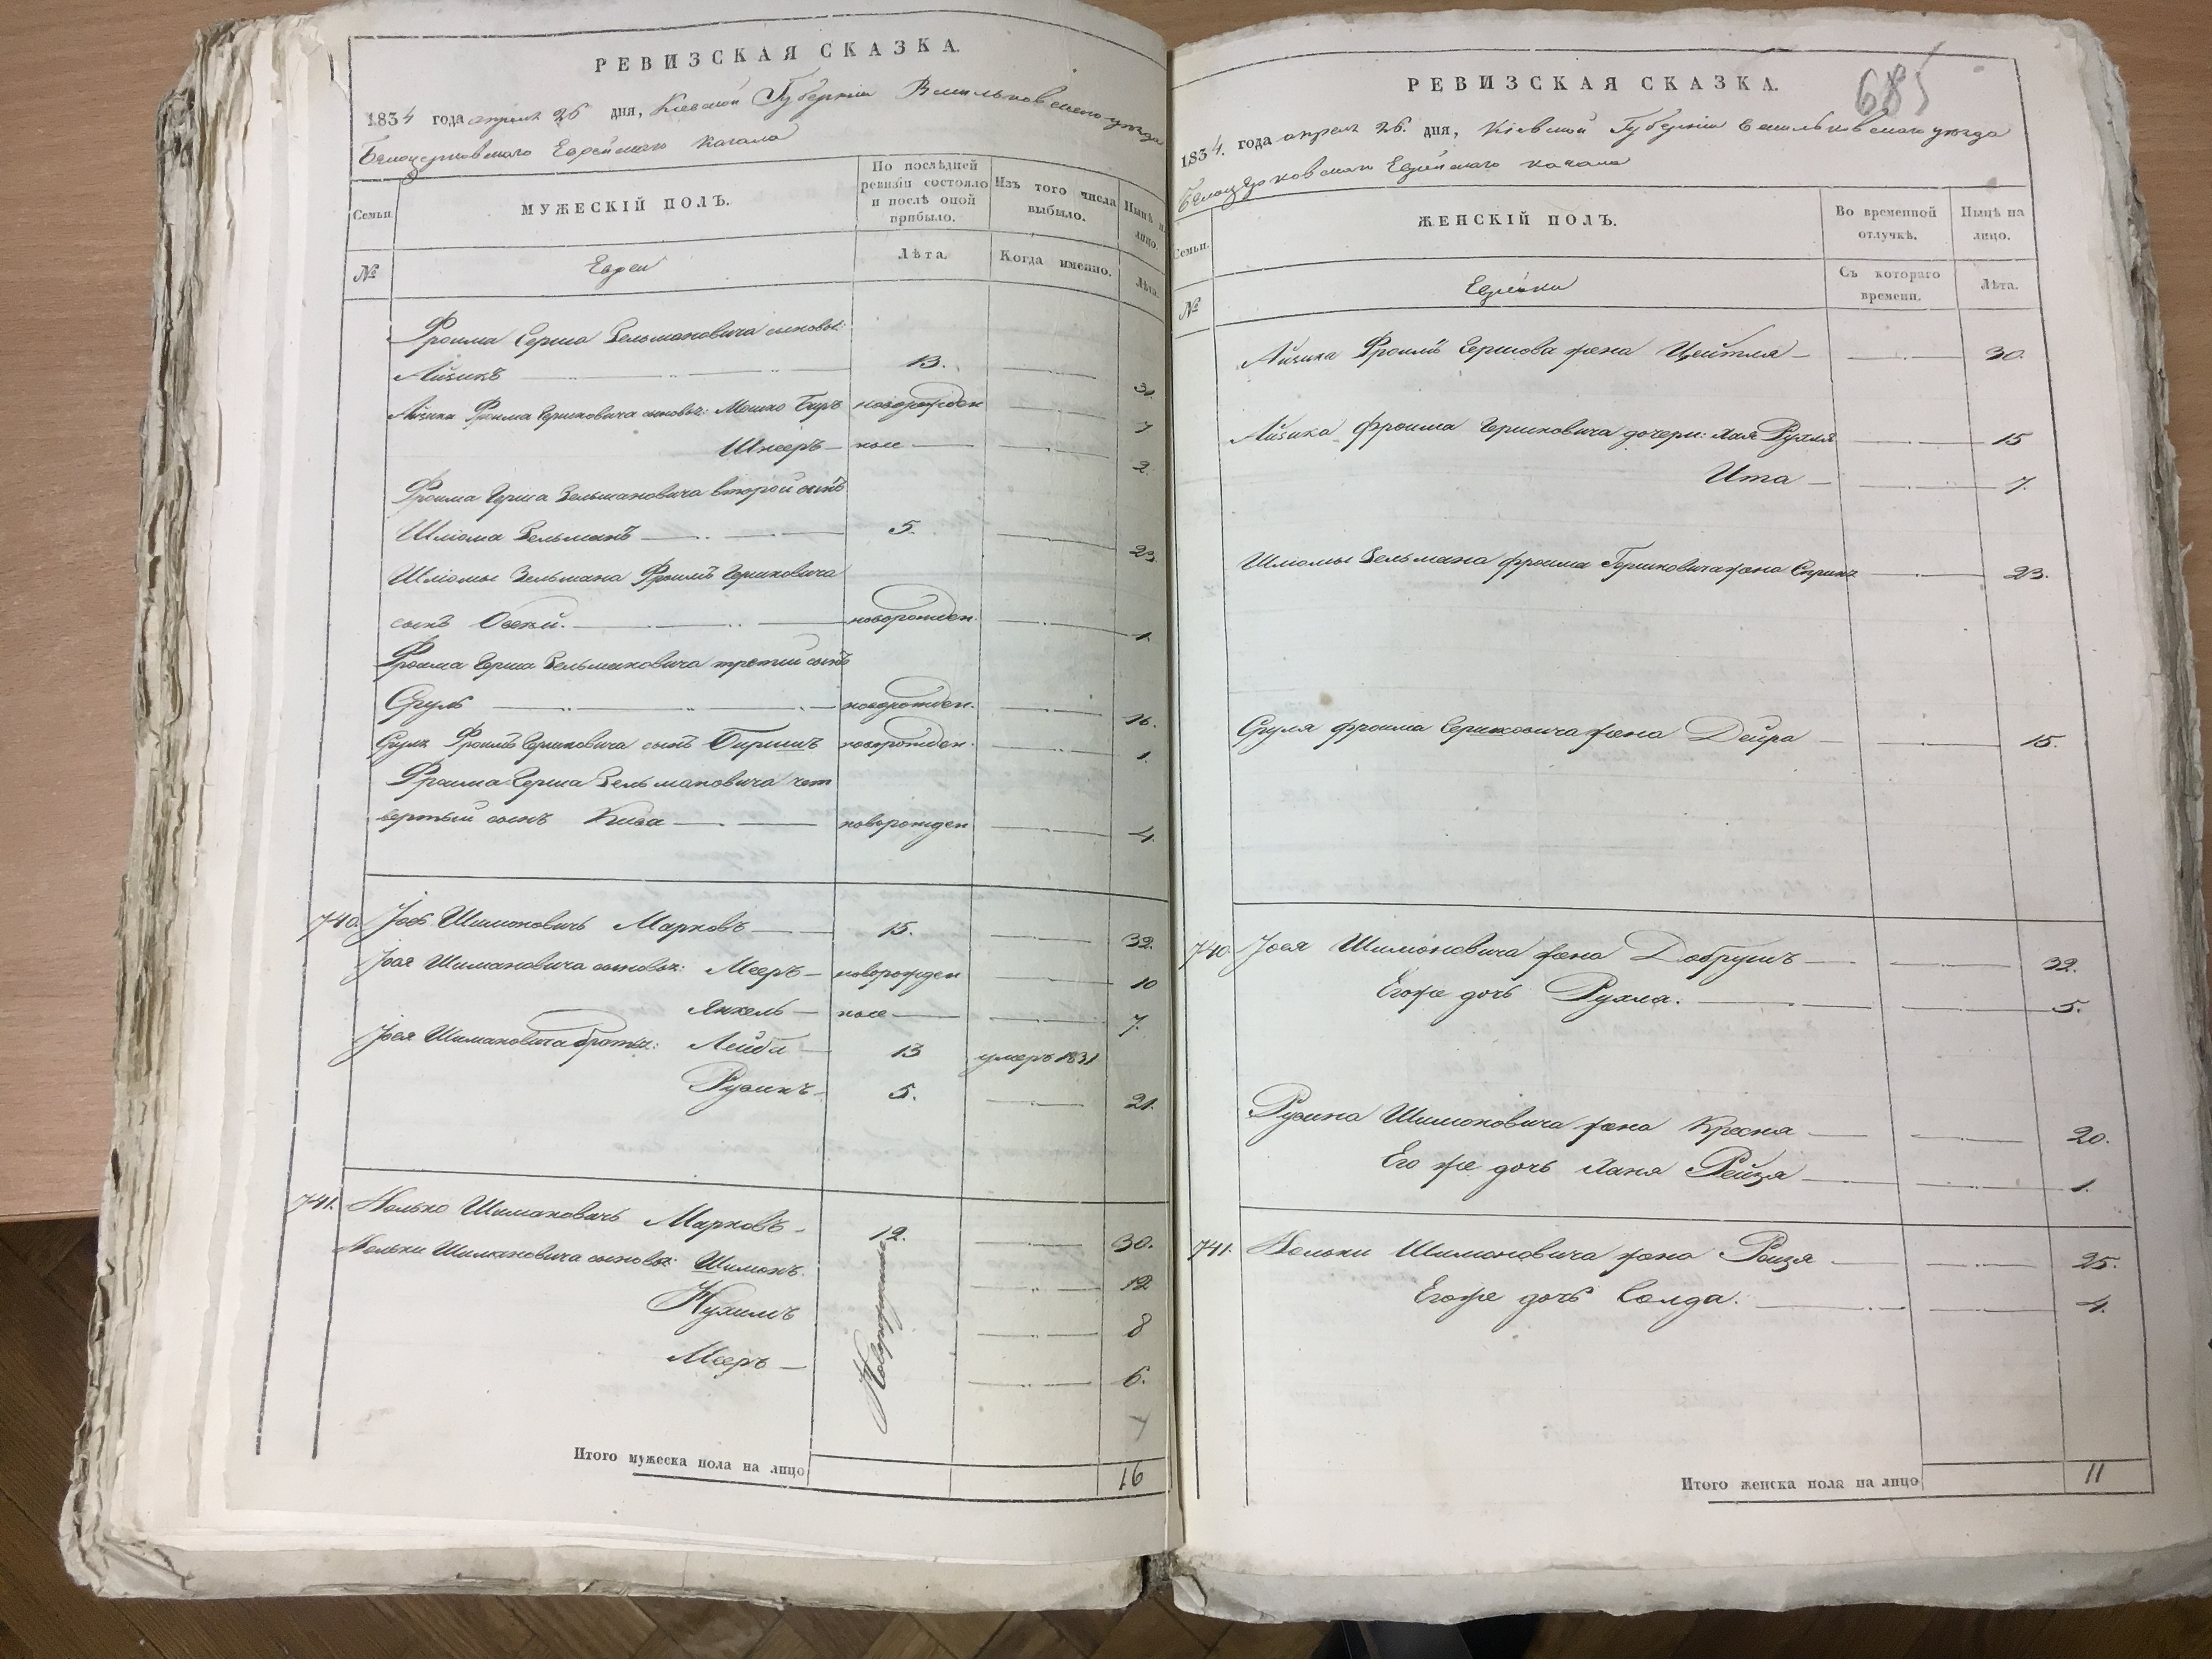 РЕВИЗСКАЯ СКАЗКА.
1834 года апреля 26 дня, Кіевской Губерніи Васильковскаго уезда
Белоцерковскаго Еврейскаго Кагала
Семьи.
МУЖЕСКІЙ ПОЛЪ.
По послѣдней ревизіи состояло и послѣ оной прибыло.
Изъ того числа выбыло.
Нынѣ на лицо.
№
Евреи
Лѣта.
Когда именно.
Лѣта.
Фроима Герша Зельмановича сыновья:
Айзикъ 13.
Айзика Фроима Гершковича сыновья: Мошко Беръ новорожден 7
Шнееръ ные 2
Фроима Герша Зельмановича второй сынъ
Шліома Зельманъ 5. 23
Шліомы Зельмана Фроимъ Гершковича
сынъ новорожден. 1.
Фроима Герша Зельмановича третий сынъ
Сруль новорожден. 16.
Сруля Фроимъ Гершковича сынъ новорожден. 1.
Фроима Герша Зельмановича чет
вертый сынъ Кива новорожден 4.
740. Іось Шимоновичъ Марковъ 15. 32.
Іося Шимановича сыновья: Мееръ новорожден 10
Янкель ные 7.
Іося Шимановича братья: Лейба 13 умеръ 1831
Рувинъ 5. 21.
741. Волько Шимановичъ Марковъ 12. 30.
Вольки Шимановича сыновья: Шимонъ. Новорожденные 12
Нухимъ 8
Мееръ 6.
Итого мужеска пола на лицо 16
685
РЕВИЗСКАЯ СКАЗКА.
1834. года апреля 26. дня, Кіевской Губерніи Васильковскаго уезда
Белоцерковскаго Еврейскаго кагала
Семьи.
ЖЕНСКІЙ ПОЛЪ.
Во временной отлучкѣ.
Нынѣ на лицо.
№
Еврейки
Съ котораго времени.
Лѣта.
Айзика Фроимъ Гершова жена Цейтля 30.
Айзика Фроима Гершковича дочери: Хая Рухля 15
Ита 7.
Шліомы Зельмана Фроима Гершковича жена 23.
Сруля Фроима Гершковича жена Дейра 15.
740. Іося Шимоновича жена Добрушъ 32.
Его же дочь Рухля. 5.
Рувина Шимоновича жена Кресня 20.
Его же дочь Хана Рейзя 1.
741. Вольки Шимановича жена Роизя 25.
Его же дочь Голда. 4.
Итого женска пола на лицо 11